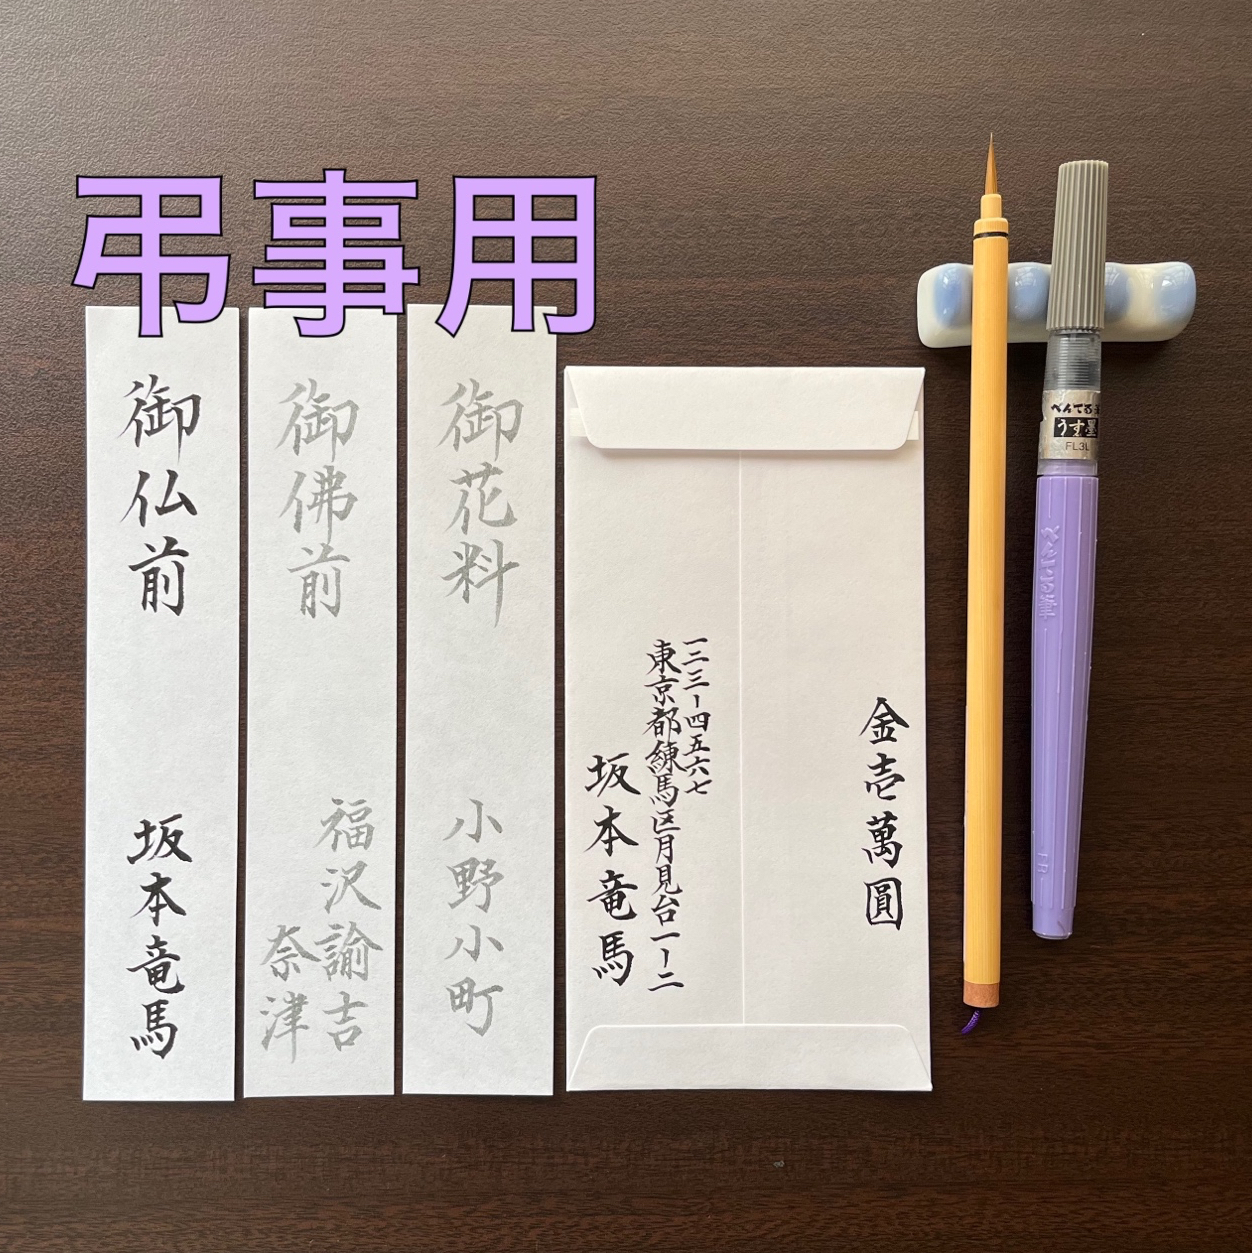 弔事用
御仏前
坂本竜馬
御佛前
福沢諭吉
奈津
御花料
小野小町
金壱萬圓
一二三-四五六七
東京都練馬区月見台一-二
坂本竜馬
ぺんてる筆
うす墨
FL3L
ぺんてる筆